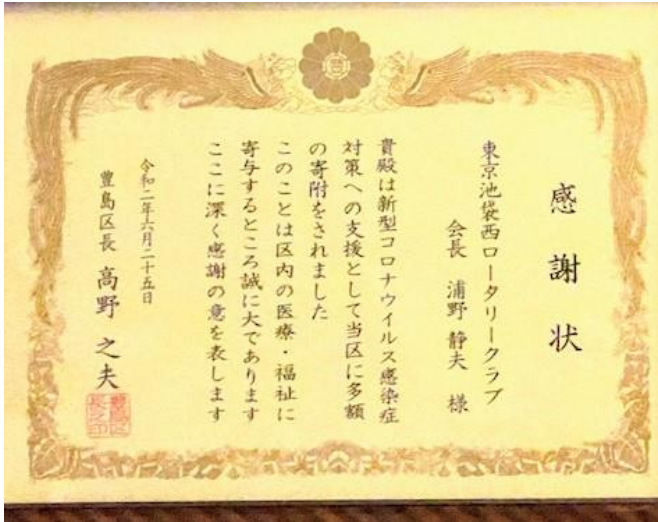 感謝状
東京池袋西ロータリークラブ
会長 浦野 静夫 様
貴殿は新型コロナウイルス感染症
対策への支援として当区に多額
の寄附をされました
このことは区内の医療・福祉に
寄与するところ誠に大であります
ここに深く感謝の意を表します
令和二年六月二十五日
豊島区長 高野 之夫
豊島区
長之印